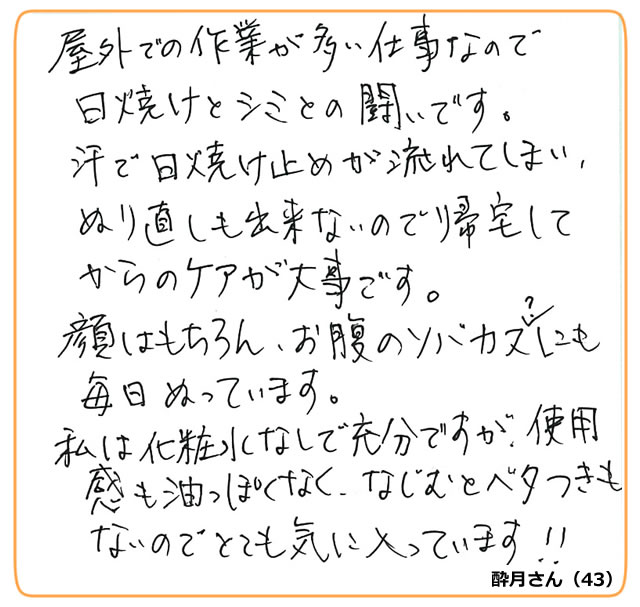 屋外での作業が多い仕事なので
日焼けとシミとの闘いです。
汗で日焼け止めが流れてしまい、
ぬり直しも出来ないので帰宅して
からのケアが大事です。
顔はもちろん、お腹のソバカス?にも
毎日ぬっています。
私は化粧水なしで充分ですが、使用
感も油っぽくなく、なじむとベタつきも
ないのでとても気に入っています!!
酔月さん（43）